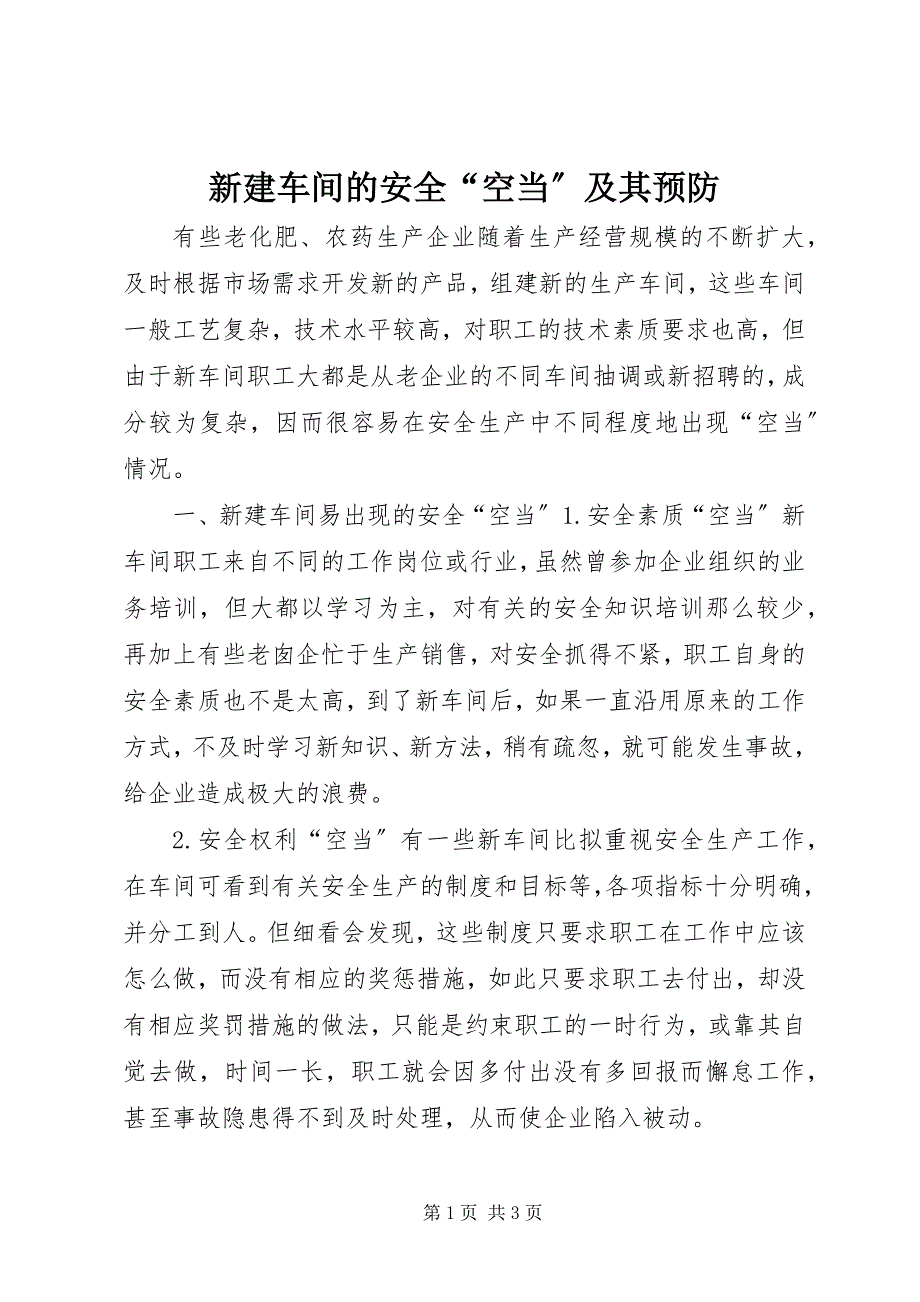 新建车间的安全“空当〞及其预防
有些老化肥、农药生产企业随着生产经营规模的不断扩大，
及时根据市场需求开发新的产品，组建新的生产车间，这些车间
一般工艺复杂，技术水平较高，对职工的技术素质要求也高，但
由于新车间职工大都是从老企业的不同车间抽调或新招聘的，成
分较为复杂，因而很容易在安全生产中不同程度地出现“空当〞
情况。
一、新建车间易出现的安全“空当〞1.安全素质“空当〞新
车间职工来自不同的工作岗位或行业，虽然曾参加企业组织的业
务培训，但大都以学习为主，对有关的安全知识培训那么较少，
再加上有些老囱企忙于生产销售，对安全抓得不紧，职工自身的
安全素质也不是太高，到了新车间后，如果一直沿用原来的工作
方式，不及时学习新知识、新方法，稍有疏忽，就可能发生事故，
给企业造成极大的浪费。
2.安全权利“空当〞有一些新车间比拟重视安全生产工作，
在车间可看到有关安全生产的制度和目标等，各项指标十分明确，
并分工到人。但细看会发现，这些制度只要求职工在工作中应该
怎么做，而没有相应的奖惩措施，如此只要求职工去付出，却没
有相应奖罚措施的做法，只能是约束职工的一时行为，或靠其自
觉去做，时间一长，职工就会因多付出没有多回报而懈怠工作，
甚至事故隐患得不到及时处理，从而使企业陷入被动。
第 1 页 共 3 页